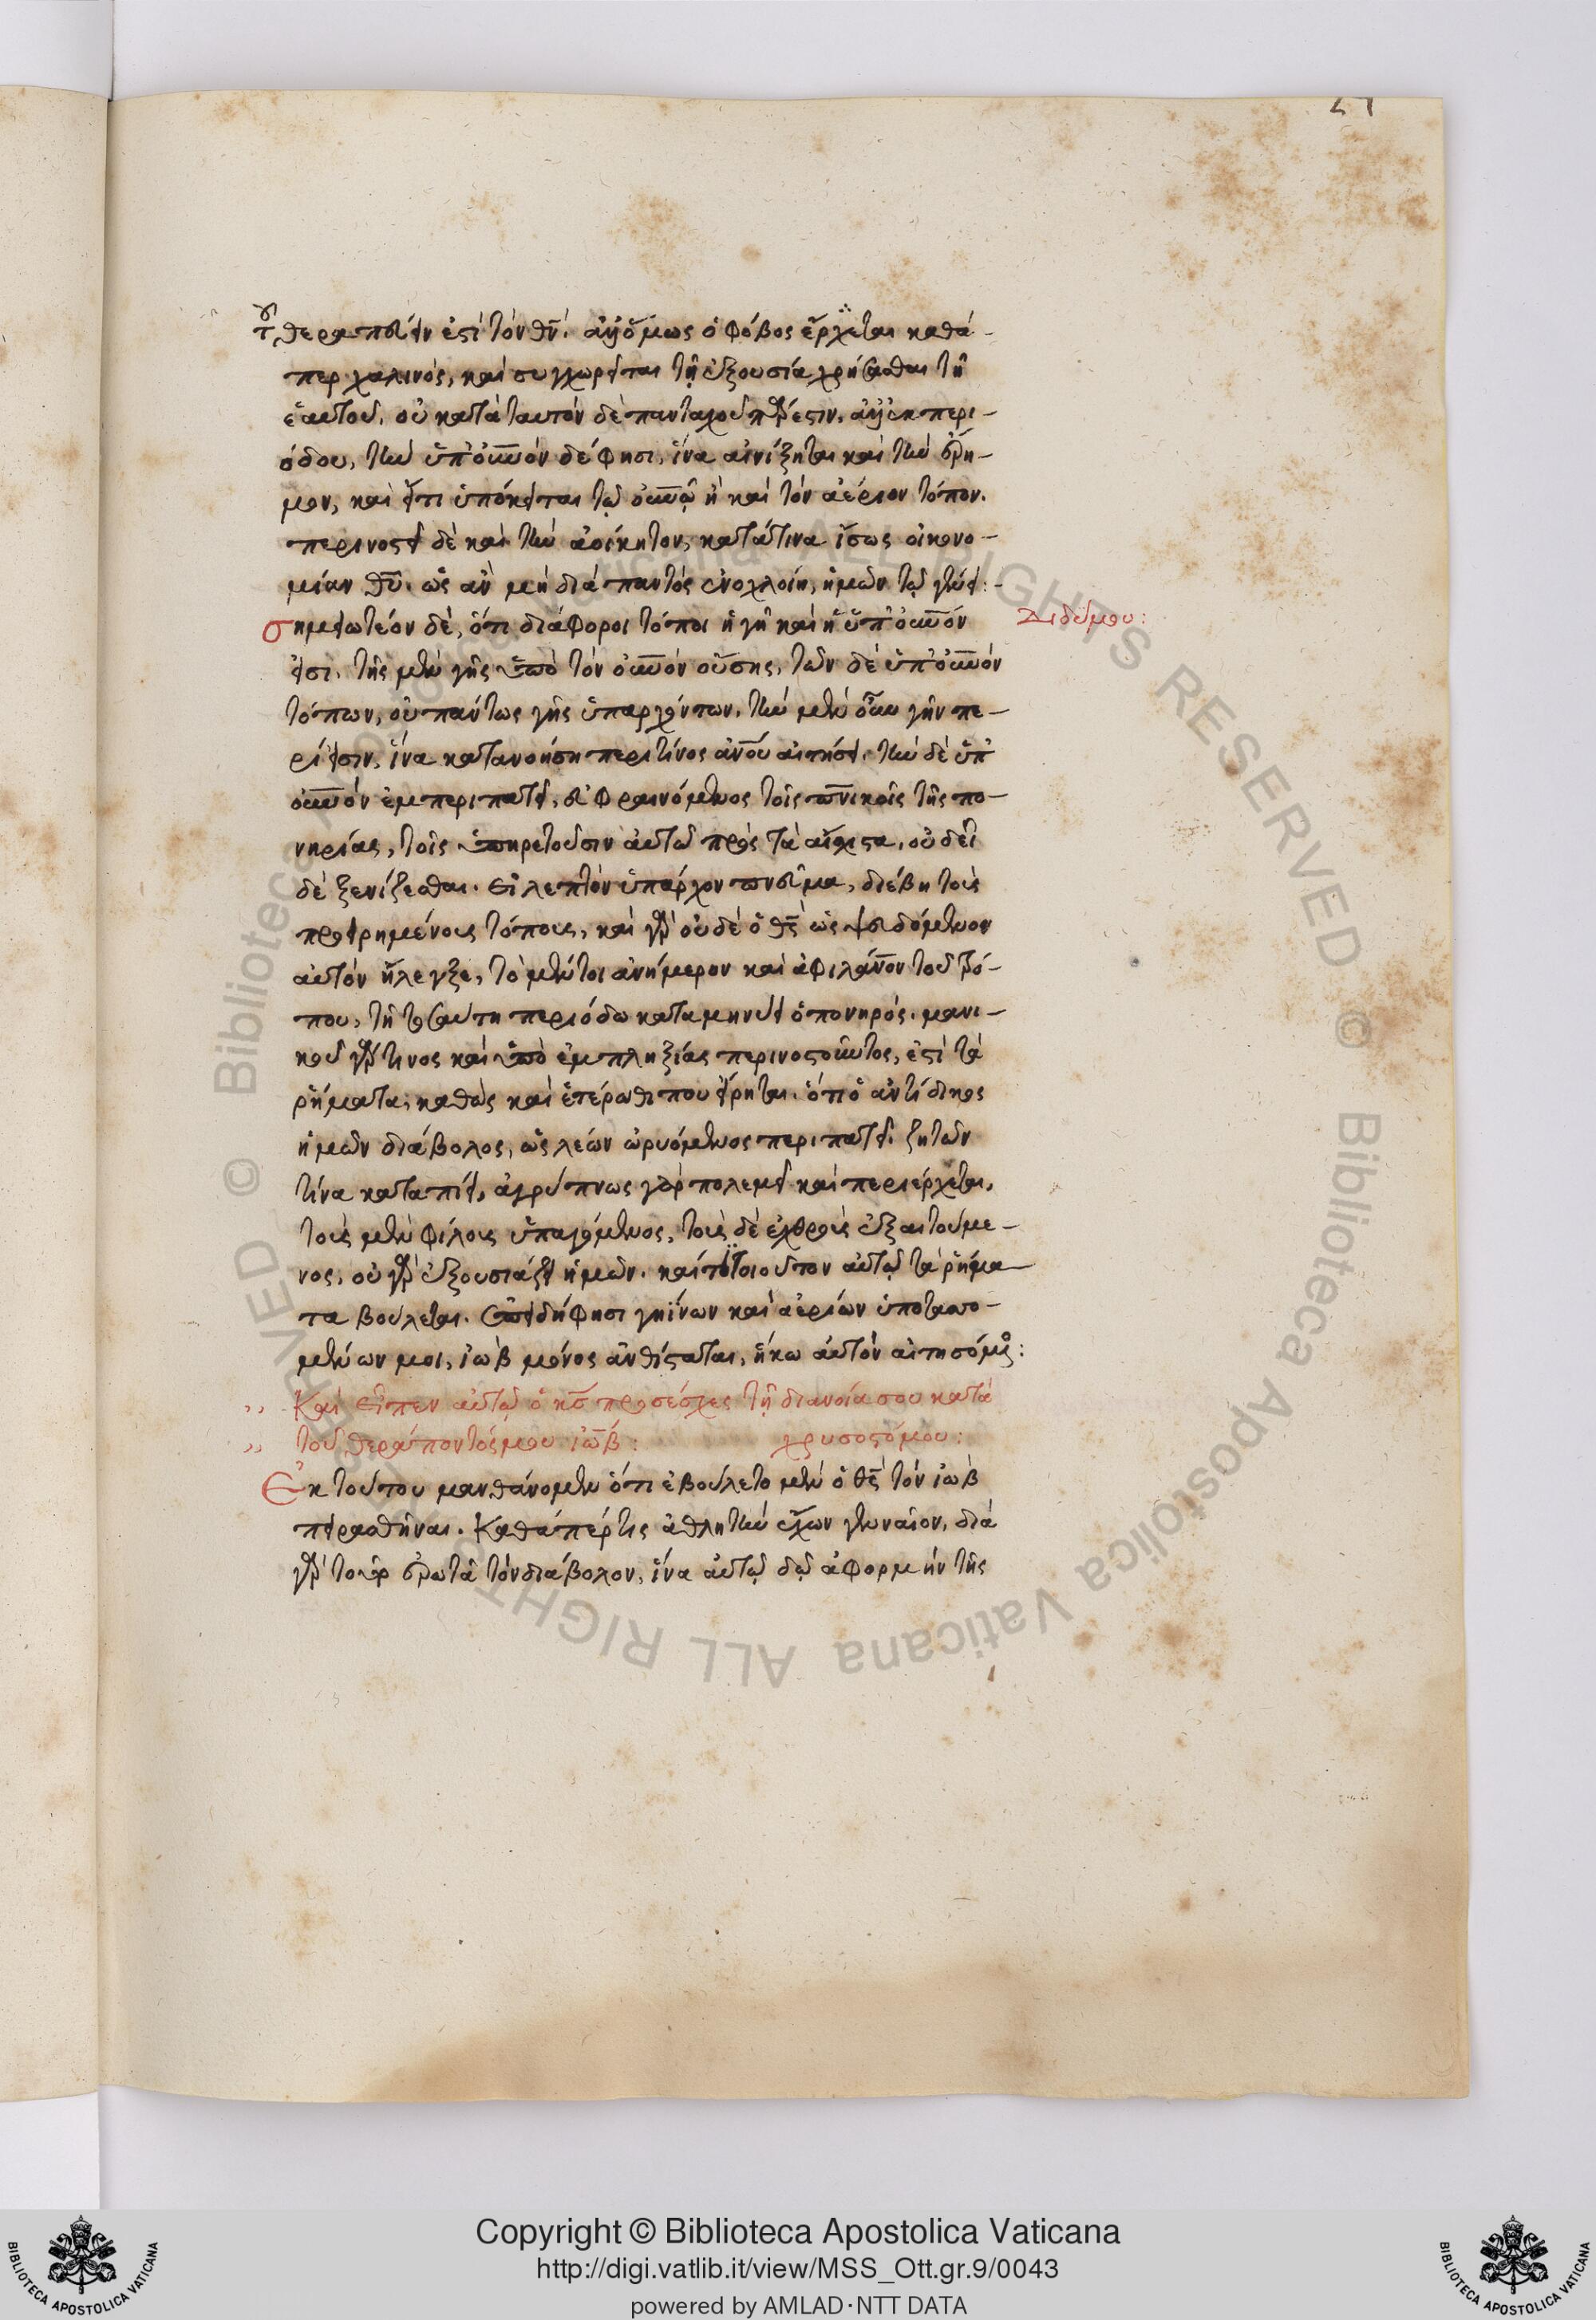 24
τοῦ θεραπεύειν ἐστὶ τὸν θν̄. ἀλλ' ὅμως ὁ φόβος ἔρχεται καθά-
περ χαλινὸς, καὶ συγχωρεῖται τῇ ἐξουσία χρήσασθαι τῇ
ἑαυτοῦ. οὐ κατὰ ταυτὸν δὲ πανταχοῦ πάρεστιν, ἀλλ' ἐκ περι-
όδου, τὴν ὑπ' οὐνὸν δέ φησι, ἵνα αἰνίξηται καὶ τὴν ἔρη-
μον, καὶ εἴ τι ὑπόκειται τῷ οὐνῷ ἢ καὶ τὸν ἀέριον τόπον.
περινοστεῖ δὲ καὶ τὴν ἀοίκητον, κατά τινα ἴσως οἰκονο-
μίαν θῦ. ὡς ἂν μὴ διὰ παντὸς ἐνοχλοίη, ἡμῶν τῷ γένει:-
σημειωτέον δὲ, ὅτι διάφοροι τόποι ἡ γῆ καὶ ἡ ὑπ' οὐνόν Διδύμου:
εἰσι. τῆς μὲν γῆς ὑπὸ τὸν οὐνὸν οὔσης, τῶν δὲ ὑπ' οὐνὸν
τόπων, οὐ πάντως γῆς ὑπαρχόντων. τὴν μὲν οὖν γῆν πε-
ρίεισιν, ἵνα κατανοήση περὶ τίνος ἀνοῦ αἰτήσει. τὴν δὲ ὑπ'
οὐνὸν ἐμπεριπατεῖ, εὐφραινόμενος τοῖς πνικοῖς τῆς πο-
νηρίας, τοῖς ὑπηρετοῦσιν αὐτῶ πρὸς τὰ αἴσχιστα, οὐ δεῖ
δὲ ξενίζεσθαι. εἰ λεπτὸν ὑπάρχον πνεῦμα, διέβη τοὺς
προειρημένους τόπους, καὶ γὰρ οὐδὲ ὁ θς̄ ὡς ψευδόμενον
αὐτὸν ἤλεγξε, τὸ μέντοι ἀνήμερον καὶ ἀφιλάνον τοῦ τρό-
που, τῆ τοσαύτη περιόδω καταμηνύει ὁ πονηρός. μανι-
κοῦ γάρ τινος καὶ ὑπὸ ἐμπληξίας περινοστοῦντος, ἐστὶ τὰ
ῥήματα, καθὼς καὶ ἑτέρωθι που εἴρηται. ὅτι ὁ ἀντίδικος
ἡμῶν διάβολος, ὡς λεών ὠρυόμενος περιπατεῖ. ζητῶν
τίνα καταπίει, ἀγρύπνως γὰρ πολεμεῖ καὶ περιέρχεται,
τοὺς μὲν φίλους ὑπαγόμενος, τοὺς δὲ ἐχθροὺς ἐξαιτούμε-
νος, οὐ γὰρ ἐξουσιάζει ἡμῶν. καί τι τοιοῦτον αὐτῷ τὰ ῥήμα-
τα βούλεται. ἐπειδή φησι γηΐνων καὶ ἀερίων ὑποταττο-
μένων μοι, ἰὼβ μόνος ἀνθίσταται, ἥκω αὐτὸν αἰτησόμενος:
,, Καὶ εἶπεν αὐτῷ ὁ κς̄ προσέσχες τῇ διανοία σου κατὰ
,, τοῦ θεράποντός μου ἰώβ: χρυσοστόμου:
Ἐκ τούτου μανθάνομεν ὅτι ἐβούλετο μὲν ὁ θς̄ τὸν ἰὼβ
πειρασθῆναι. Καθάπέρ τις ἀθλητὴν ἔχων γενναῖον, διὰ
γὰρ τοῦτο ἐρωτᾶ τὸν διάβολον, ἵνα αὐτῷ δῷ ἀφορμὴν τῆς
Copyright © Biblioteca Apostolica Vaticana
http://digi.vatlib.it/view/MSS_Ott.gr.9/0043
powered by AMLAD·NTT DATA
BIBLIOTECA APOSTOLICA VATICANA
BIBLIOTECA APOSTOLICA VATICANA
© Biblioteca Apostolica Vaticana ALL RIGHTS RESERVED © Biblioteca Apostolica Vaticana ALL RIGHTS RESERVED